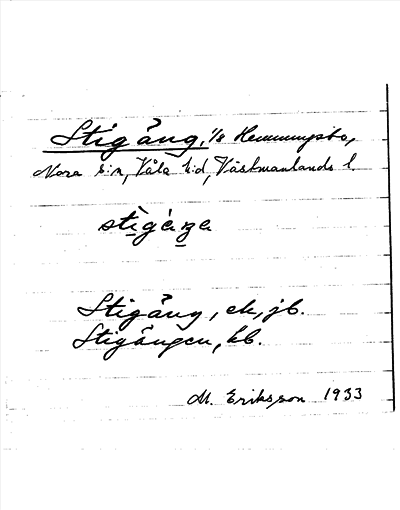 Stigäng, 1/8 Hemmingsbo,
Nora s:n, Våla h:d, Västmanlands l.
stìgä́ŋa
Stigäng, ek, jb.
Stigängen, kb.
M. Eriksson 1933